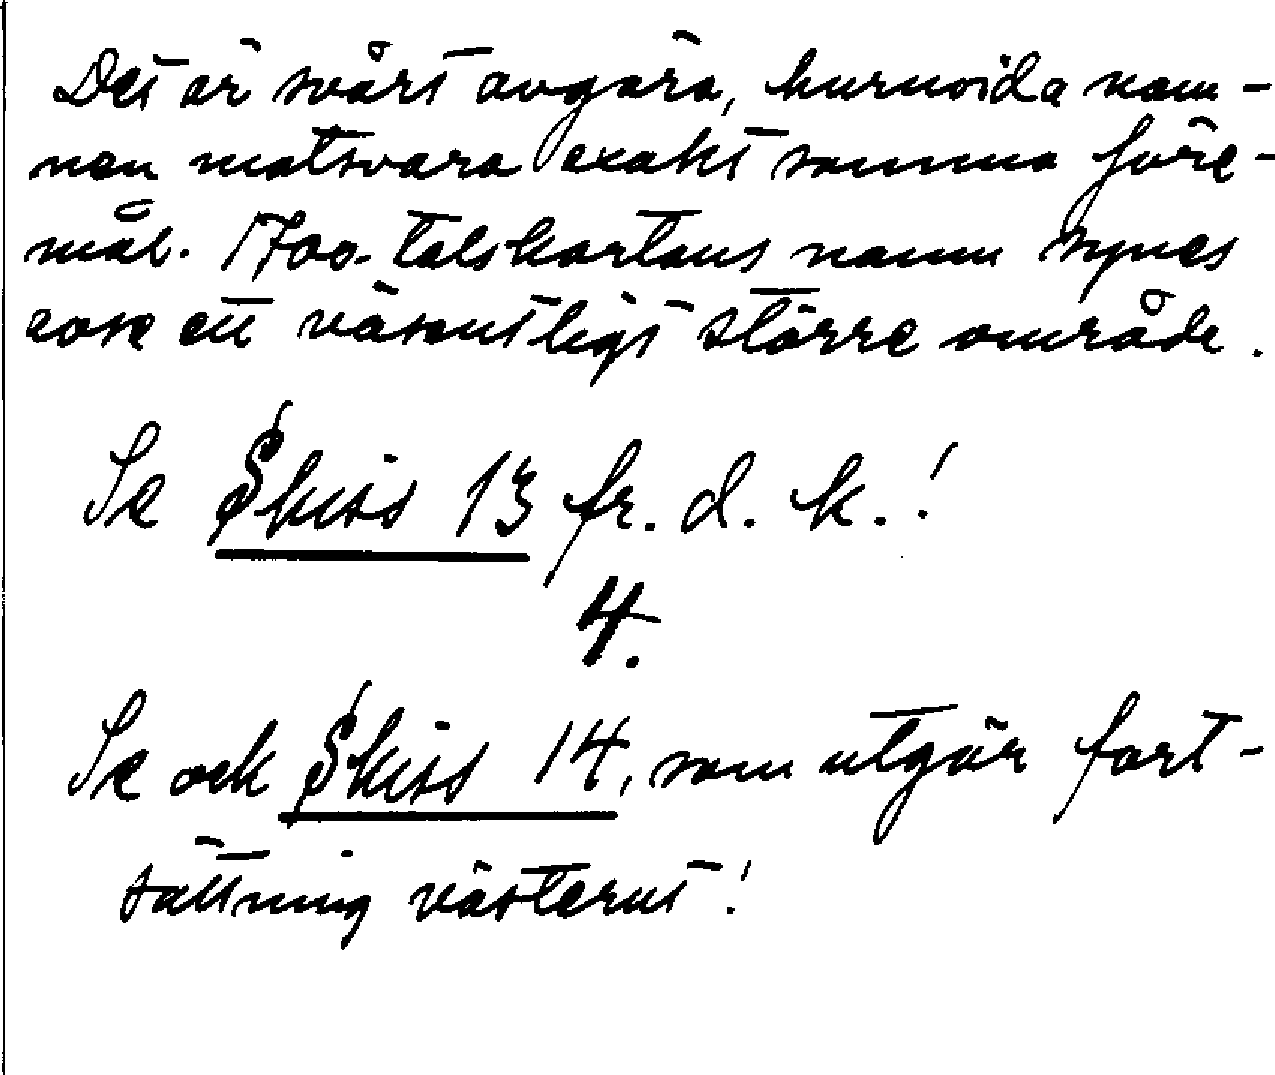 Det är svårt avgöra, huruvida nam-
nen motsvara exakt samma före-
mål. 1700-talskartans namn synes
avse ett väsentligt större område.
Se Skiss 13 fr. d. k.!
4.
Se ock Skiss 14, som utgör fort-
sättning västerut!